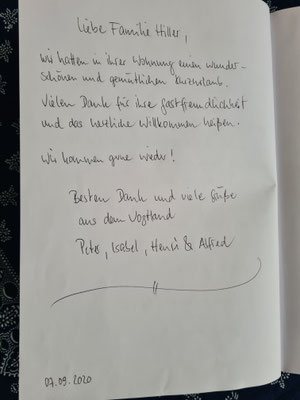 Liebe Familie Hiller,
wir hatten in ihrer Wohnung einen wunder-
schönen und gemütlichen Kurzurlaub.
Vielen Dank für ihre Gastfreundlichkeit
und das herzliche Willkommen heißen.
Wir kommen gerne wieder!
Besten Dank und viele Grüße
aus dem Vogtland
Peter, Isabel, Henri & Alfred
07.09.2020